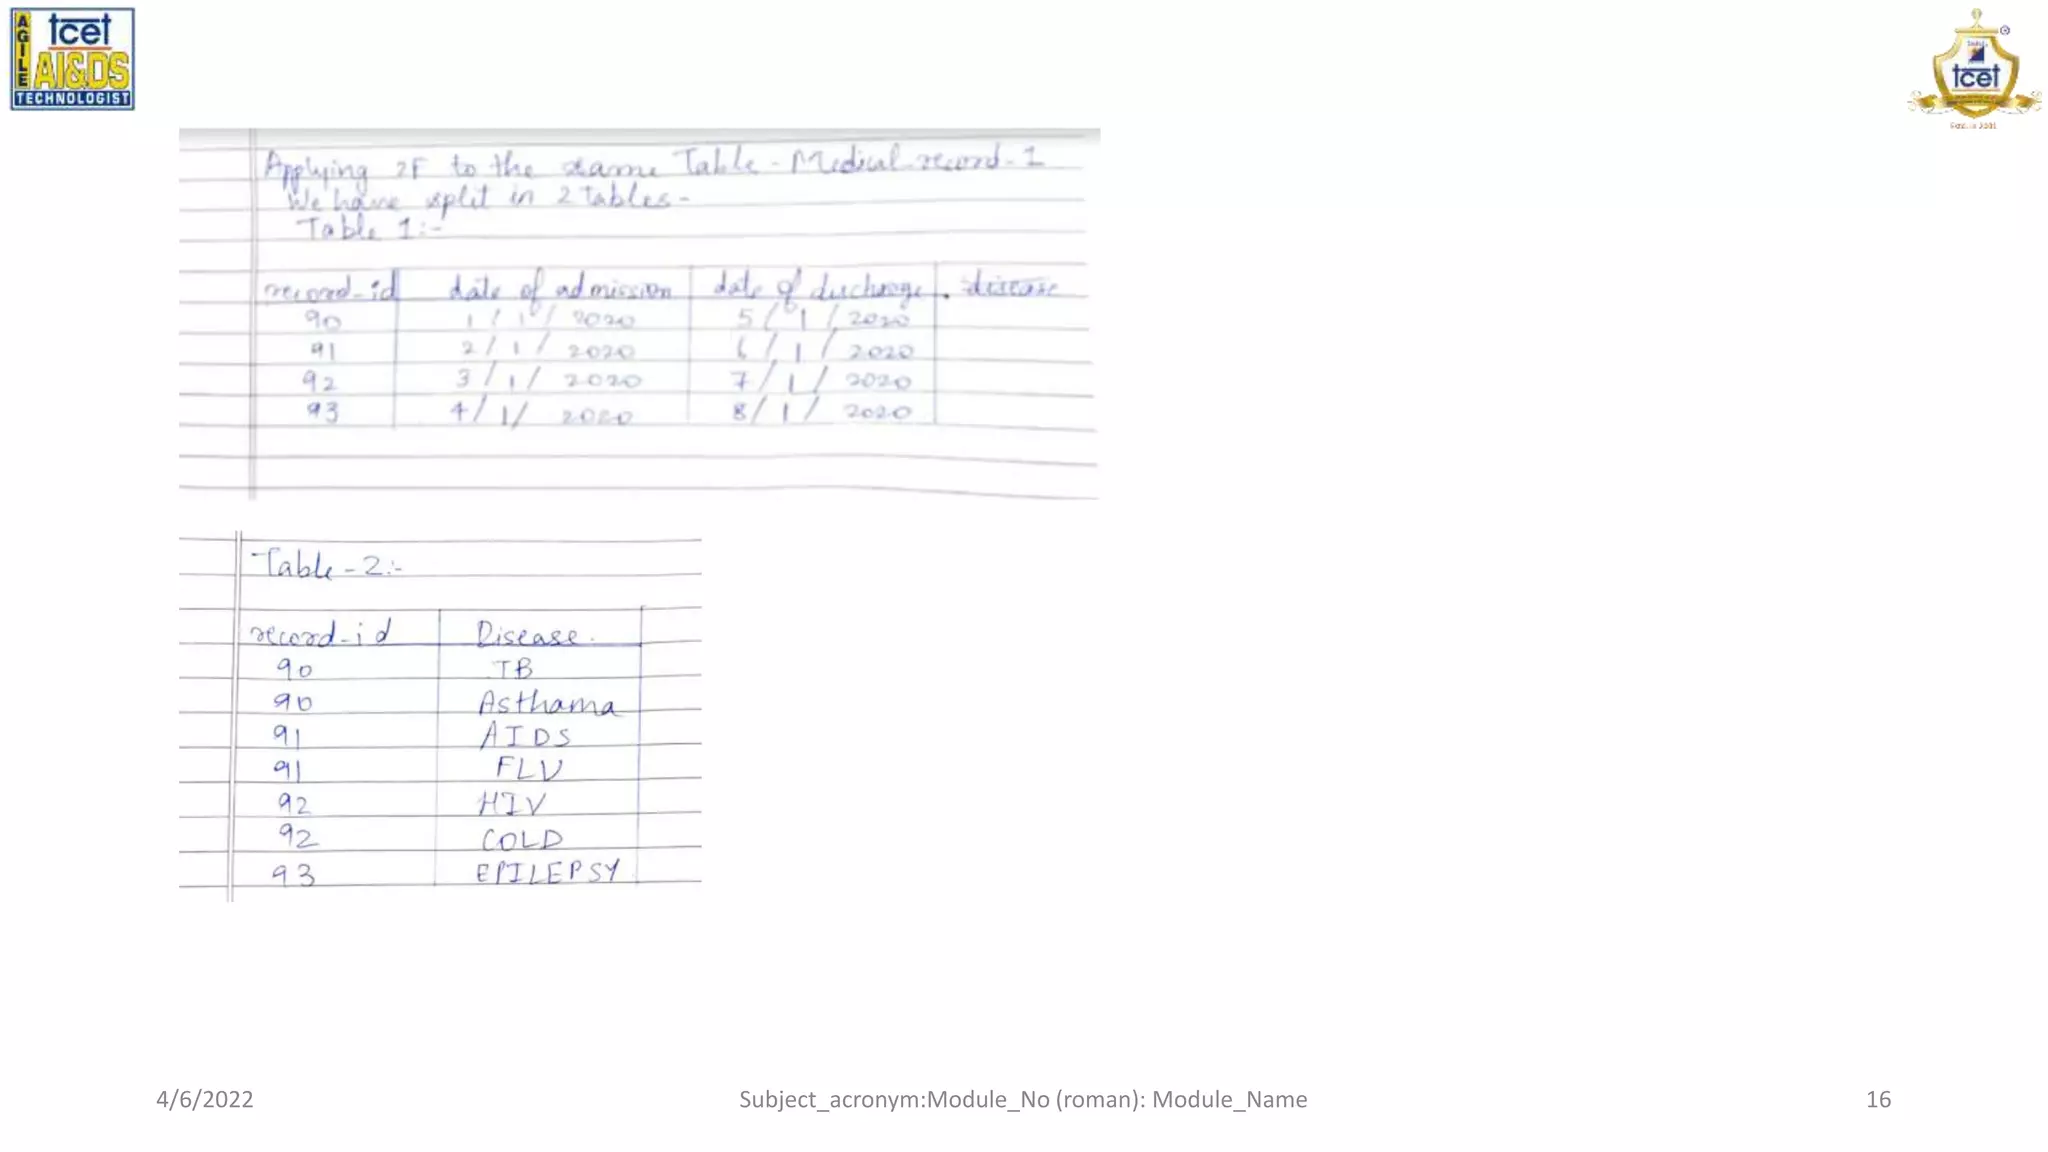 AGILE
tcet
AI&DS
TECHNOLOGIST
tcet
Applying 2F to the same Table - Medical-record-1
We have split in 2 tables -
Table 1:-
record-id date of admission date of discharge . disease
90 1/1/2020 5/1/2020
91 2/1/2020 6/1/2020
92 3/1/2020 7/1/2020
93 4/1/2020 8/1/2020
Table-2:-
record-id Disease.
90 TB
90 Asthama
91 AIDS
91 FLU
92 HIV
92 COLD
93 EPILEPSY
4/6/2022 Subject_acronym:Module_No (roman): Module_Name 16